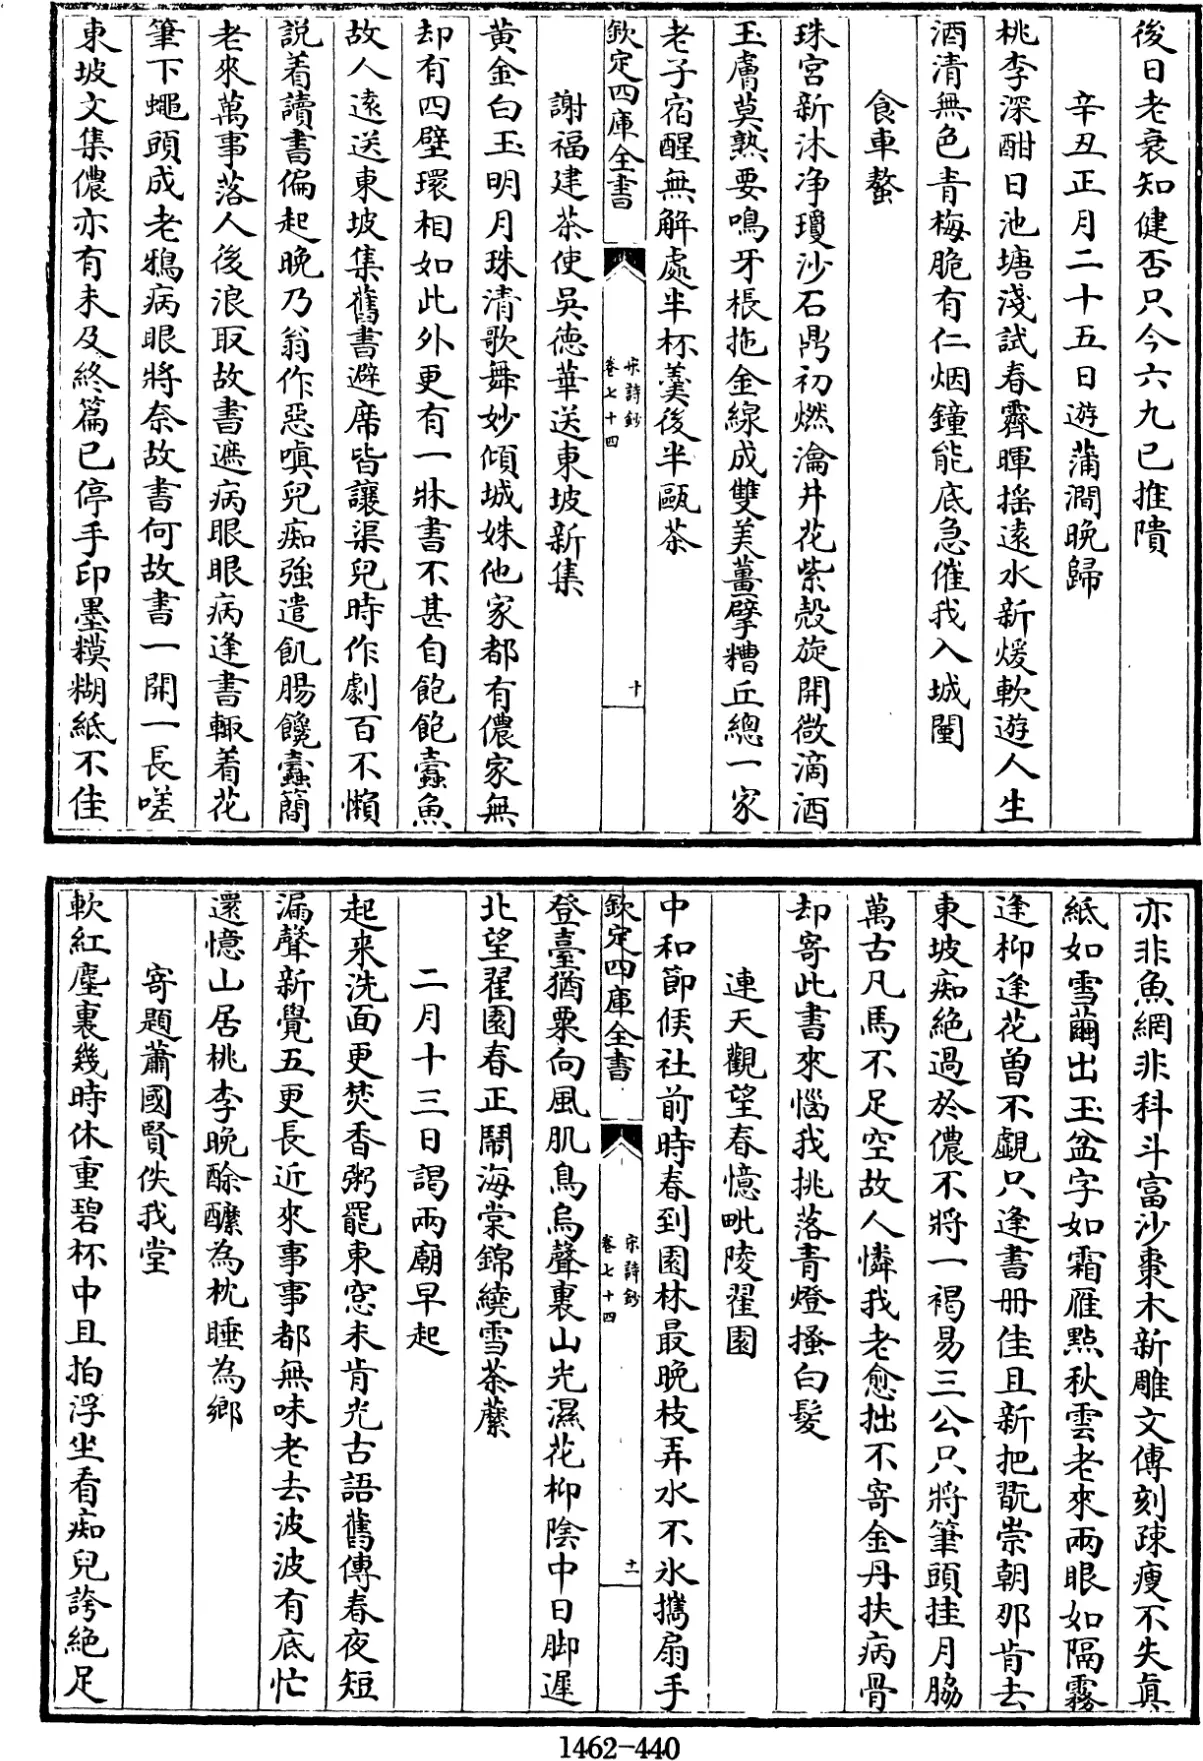 後日老衰知健否只今六九已推隤
辛丑正月二十五日遊蒲澗晚歸
桃李深酣日池塘淺試春霽暉搖遠水新煖軟遊人生
酒清無色青梅脆有仁烟鐘能底急催我入城闉
食車螯
珠宮新沐净瓊沙石鼎初燃瀹井花紫殼旋開微滴酒
玉膚莫熟要鳴牙棖拖金線成雙美薑擘糟丘總一家
老子宿酲無解處半杯羹後半甌茶
欽定四庫全書
宋詩鈔
卷七十四
十
謝福建茶使吳德華送東坡新集
黃金白玉明月珠清歌舞妙傾城姝他家都有儂家無
却有四壁環相如此外更有一牀書不甚自飽飽蠹魚
故人遠送東坡集舊書避席皆讓渠兒時作劇百不懶
説着讀書偏起晚乃翁作惡嗔兒痴強遣飢腸饞蠹簡
老來萬事落人後浪取故書遮病眼眼病逢書輙着花
筆下蠅頭成老鴉病眼將奈故書何故書一開一長嗟
東坡文集儂亦有未及終篇已停手印墨糢糊紙不佳
亦非魚網非科斗富沙棗木新雕文傳刻疎瘦不失真
紙如雪繭出玉盆字如霜雁點秋雲老來兩眼如隔霧
逢柳逢花曾不覷只逢書册佳且新把翫崇朝那肯去
東坡痴絕過於儂不將一褐易三公只將筆頭挂月脇
萬古凡馬不足空故人憐我老愈拙不寄金丹扶病骨
却寄此書來惱我挑落青燈搔白髮
連天觀望春憶毗陵翟園
中和節候社前時春到園林最晚枝弄水不氷攜扇手
欽定四庫全書
宋詩鈔
卷七十四
十一
登臺猶粟向風肌鳥烏聲裏山光濕花柳陰中日脚遲
北望翟園春正鬧海棠錦繞雪茶䕷
二月十三日謁兩廟早起
起来洗面更焚香粥罷東窓未肯光古語舊傳春夜短
漏聲新覺五更長近來事事都無味老去波波有底忙
還憶山居桃李晚酴醾為枕睡為鄉
寄題蕭國賢佚我堂
軟紅塵裏幾時休重碧杯中且拍浮坐看痴兒誇絶足
1462-440